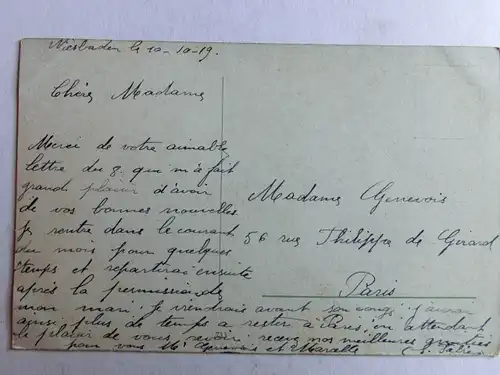 Wiesbaden le 10-10-19.
Chère Madame
Merci de votre aimable
lettre du 8. qui m'a fait
grand plaisir d'avoir
de vos bonnes nouvelles
je rentre dans le courant
du mois pour quelques
temps et repartirai ensuite
après la permission de
mon mari. Je viendrais avant son congé j'aurai
ainsi plus de temps a rester à Paris, en attendant
le plaisir de vous revoir recevez nos meilleures
pour vous Mr Genevois et
Madame Genevois
56 rue Philippe de Girard
Paris